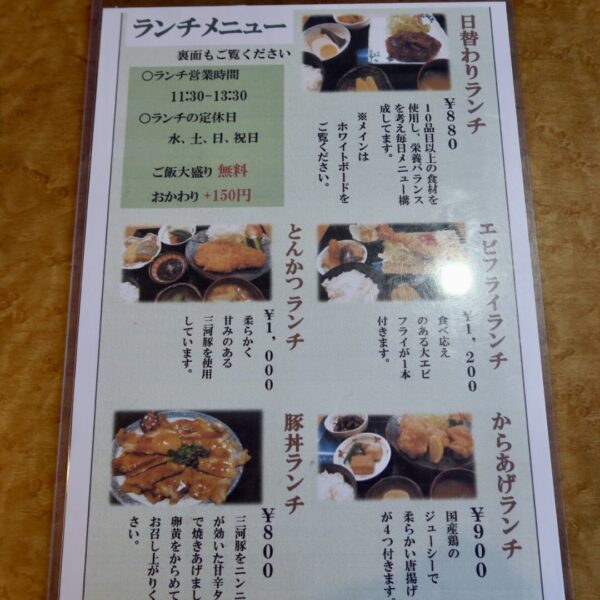 ランチメニュー
裏面もご覧ください
○ランチ営業時間
11:30-13:30
○ランチの定休日
水、土、日、祝日
ご飯大盛り 無料
おかわり +150円
日替わりランチ
¥880
10品目以上の食材を
使用し、栄養バランス
を考え毎日メニュー構
成してます。
※メインは
ホワイトボードを
ご覧ください。
エビフライランチ
¥1,200
食べ応え
のある大エビ
フライが1本
付きます。
とんかつランチ
¥1,000
柔らかく
甘みのある
三河豚を使用
しています。
からあげランチ
¥900
国産鶏の
ジューシーで
柔らかい唐揚げ
が4つ付きます。
豚丼ランチ
¥800
三河豚をニンニ
が効いた甘辛タ
で焼きあげまし
卵黄をからめて
お召し上がりく
さい。